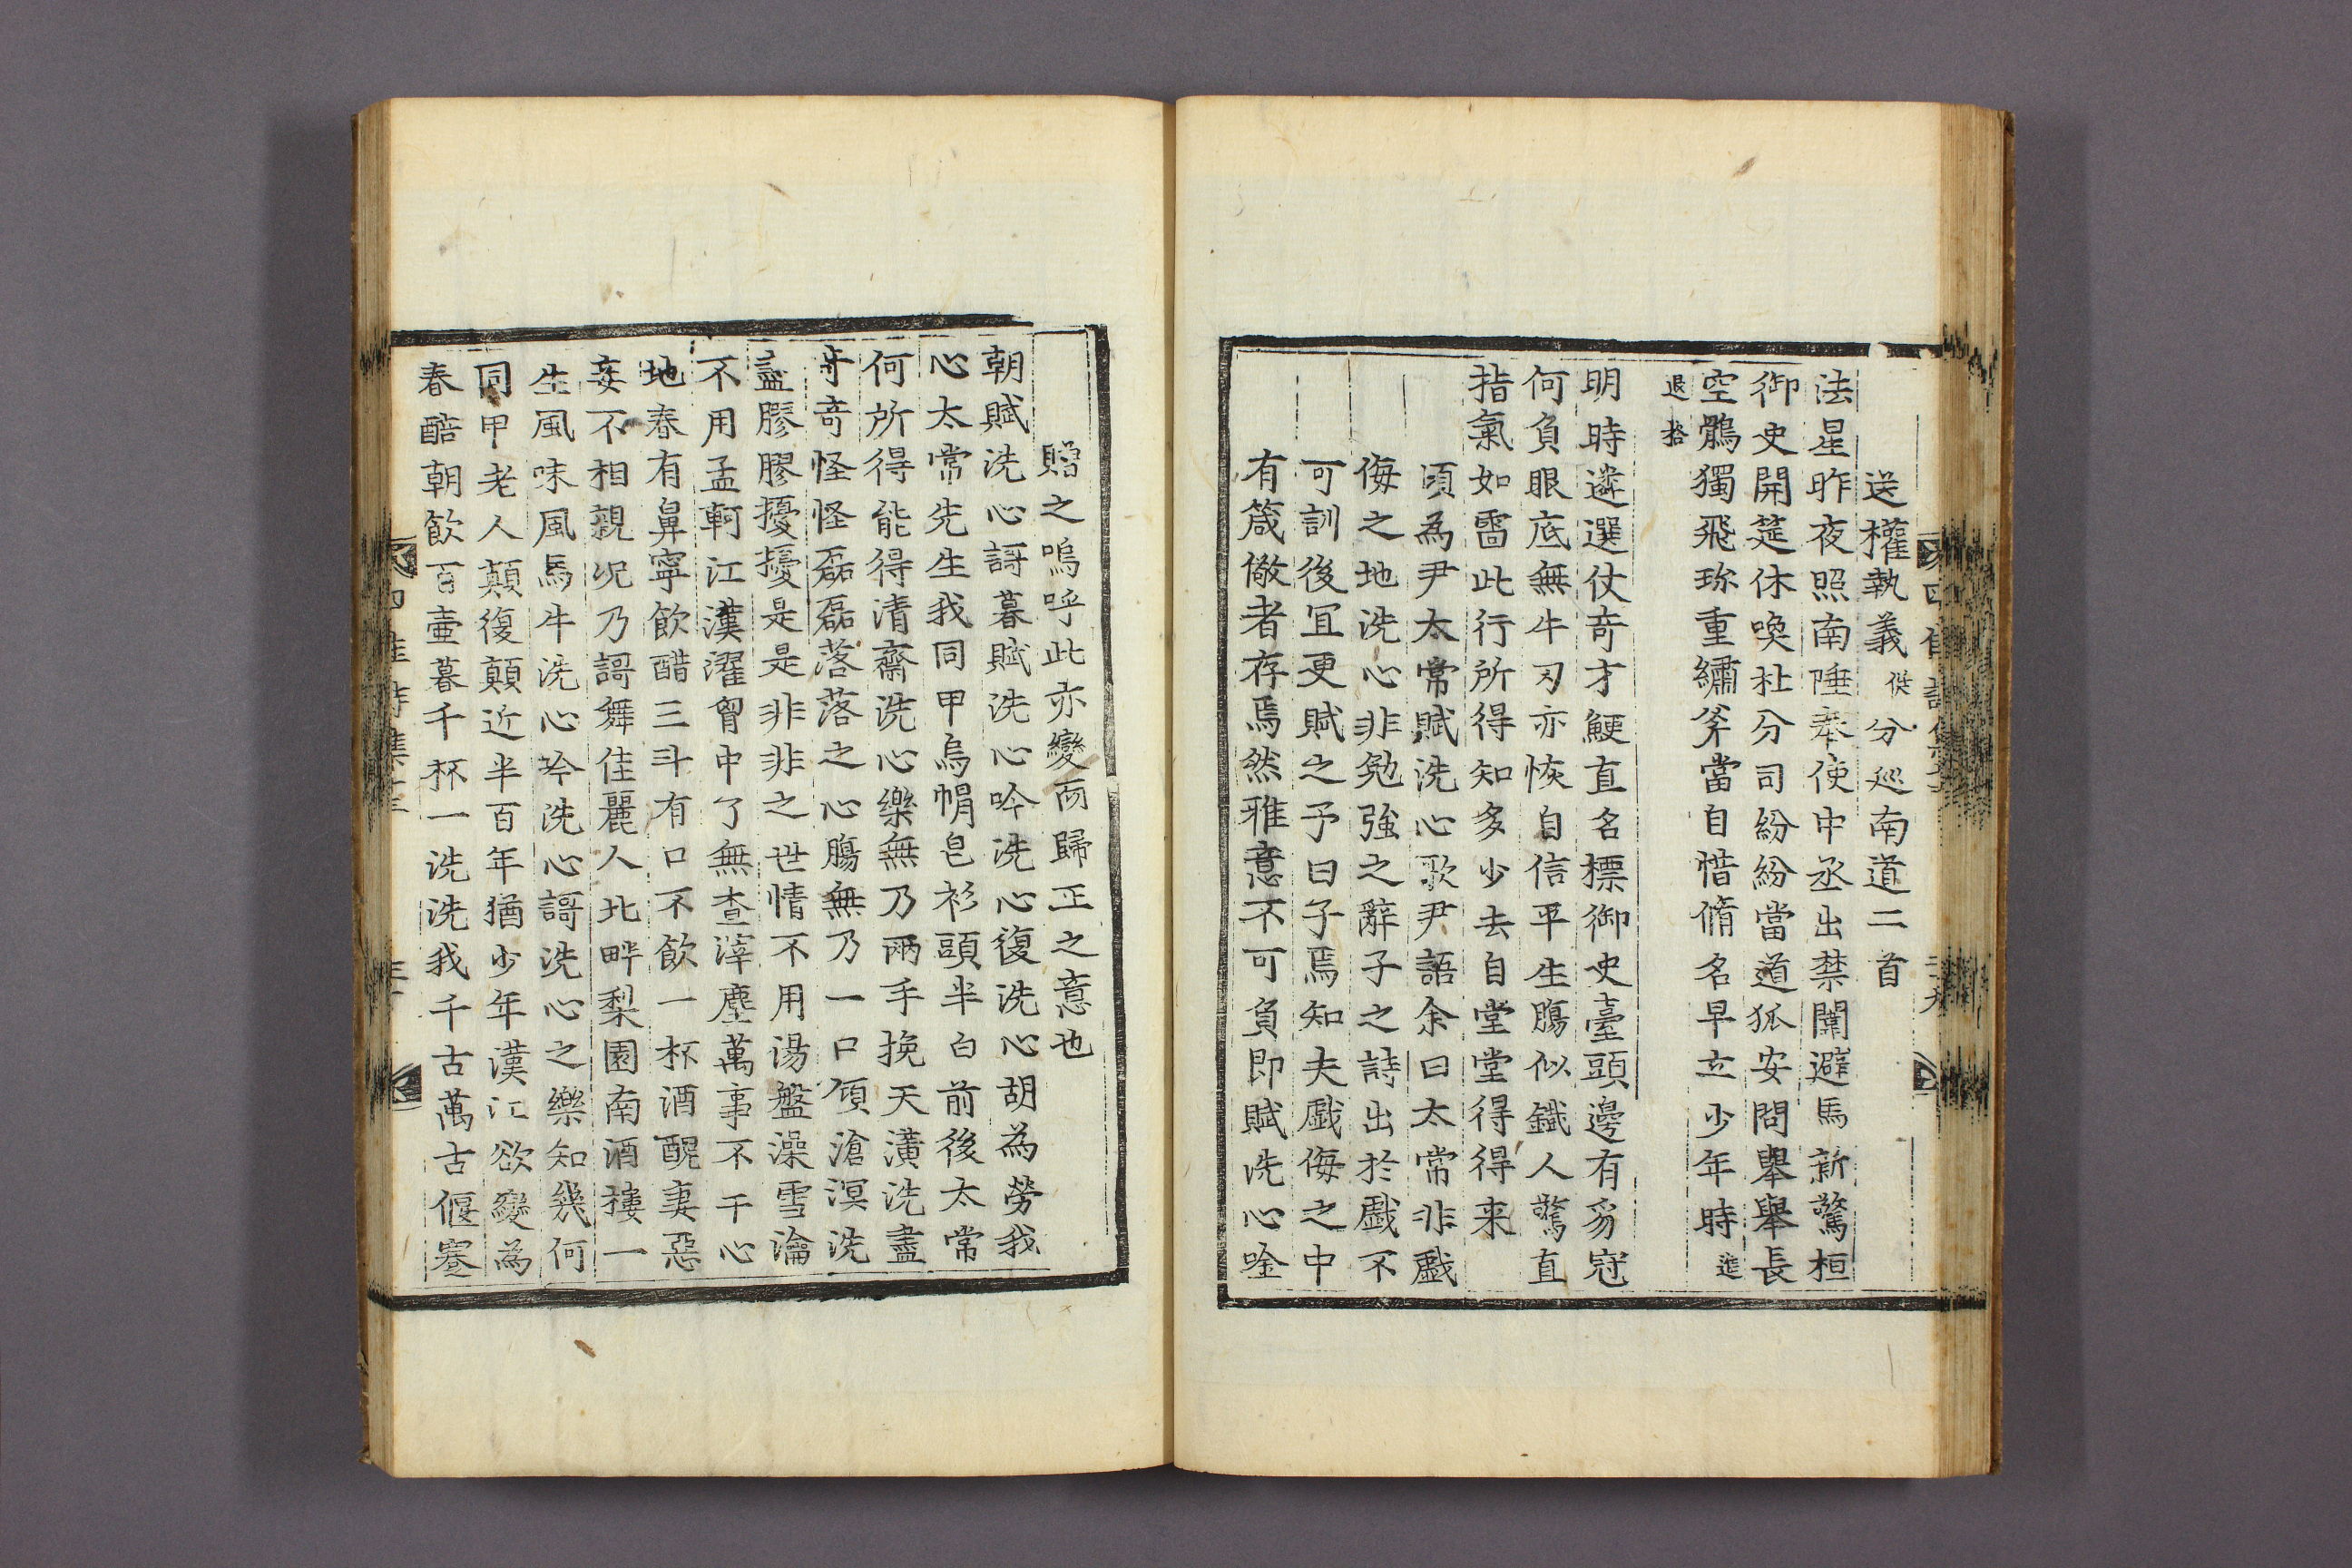 送權執義倂分巡南道二首
法星昨夜照南陲奉使中丞出禁闈避馬新驚桓
御史開筵休喚杜分司紛紛當道狐安問舉舉長
空鶻獨飛珎重繡斧當自惜脩名早立少年時進
退格
明時遴選仗奇才鯁直名標御史臺頭邊有豸冠
何負眼底無牛刃亦恢自信平生膓似鐵人驚直
指氣如雷此行所得知多少去自堂堂得得来
頃為尹太常賦洗心歌尹語余曰太常非戯
侮之地洗心非勉強之辭子之詩出於戯不
可訓後冝更賦之予曰子焉知夫戯侮之中
有箴儆者存焉然雅意不可負即賦洗心唫
贈之嗚呼此亦變而歸正之意也
朝賦洗心謌暮賦洗心吟洗心復洗心胡為勞我
心太常先生我同甲烏㡌皂衫頭半白前後太常
何所得能得清齋洗心樂無乃兩手挽天潢洗盡
奇奇怪怪磊磊落落之心膓無乃一口傾滄溟洗
盪膠膠擾擾是是非非之世情不用湯盤澡雪瀹
不用孟軻江漢濯胷中了無查滓塵萬事不干心
地春有鼻寧飲醋三斗有口不飲一杯酒醜妻惡
妾不相親况乃謌舞佳麗人北畔梨園南酒摟一
生風味風馬牛洗心吟洗心謌洗心之樂知幾何
同甲老人顛復顛近半百年猶少年漢江欲變為
春醅朝飲百壷暮千杯一洗洗我千古萬古偃蹇